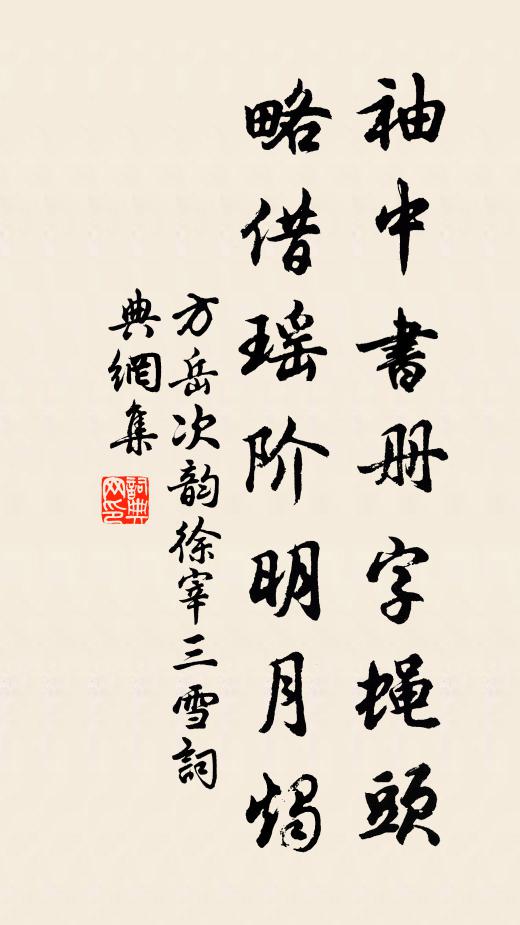 袖中書册字蝇頭
略借瑶阶明月燭
方岳次韵徐宰三雪詞
典網集
詞典网印